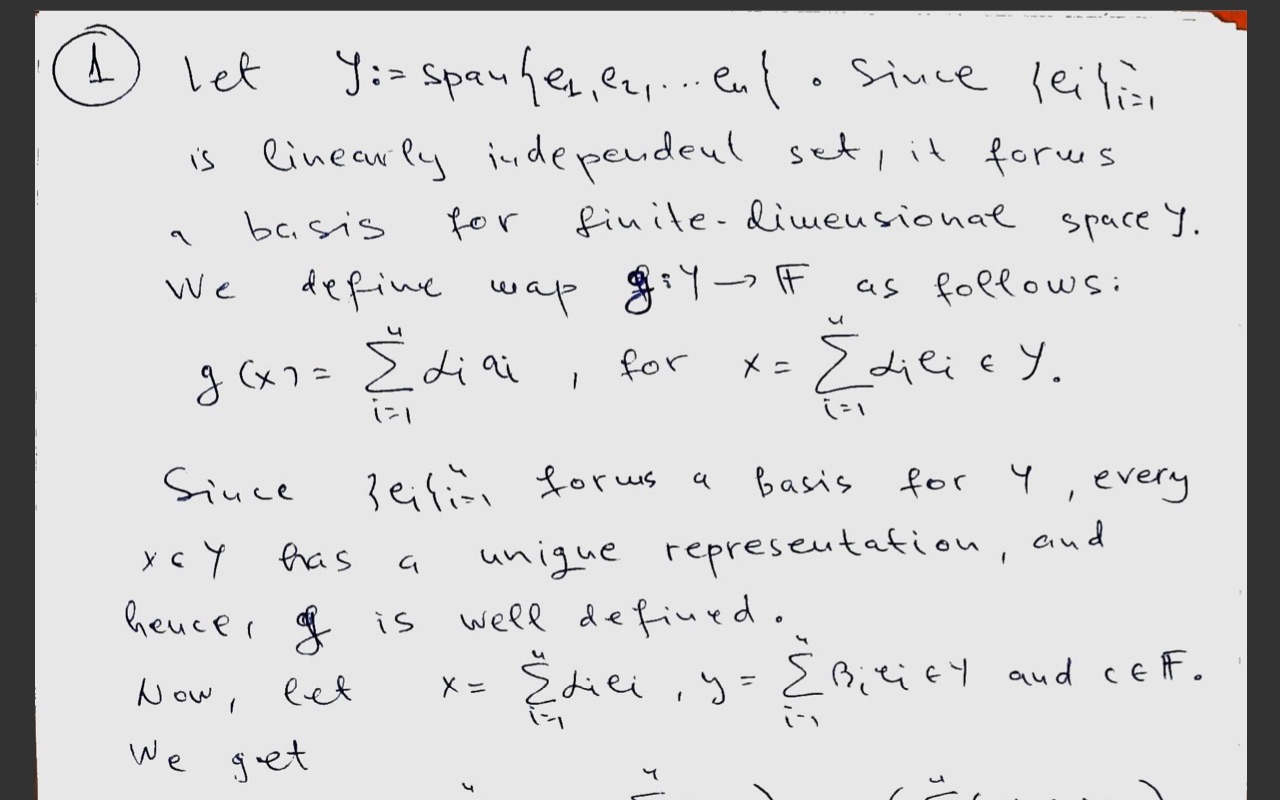 ① Let Y := span{e₁, e₂, ... eₙ}. Since {eᵢ}ⁿᵢ₌₁
is linearly independent set, it forms
a basis for finite-dimensional space Y.
We define map g: Y → 𝔽 as follows:
g(x) = Σⁿᵢ₌₁ αᵢ aᵢ , for x = Σⁿᵢ₌₁ αᵢeᵢ ∈ Y.
Since {eᵢ}ⁿᵢ₌₁ forms a basis for Y, every
x ∈ Y has a unique representation, and
hence, g is well defined.
Now, let x = Σⁿᵢ₌₁ αᵢeᵢ , y = Σⁿᵢ₌₁ βᵢeᵢ ∈ Y and c ∈ 𝔽.
We get